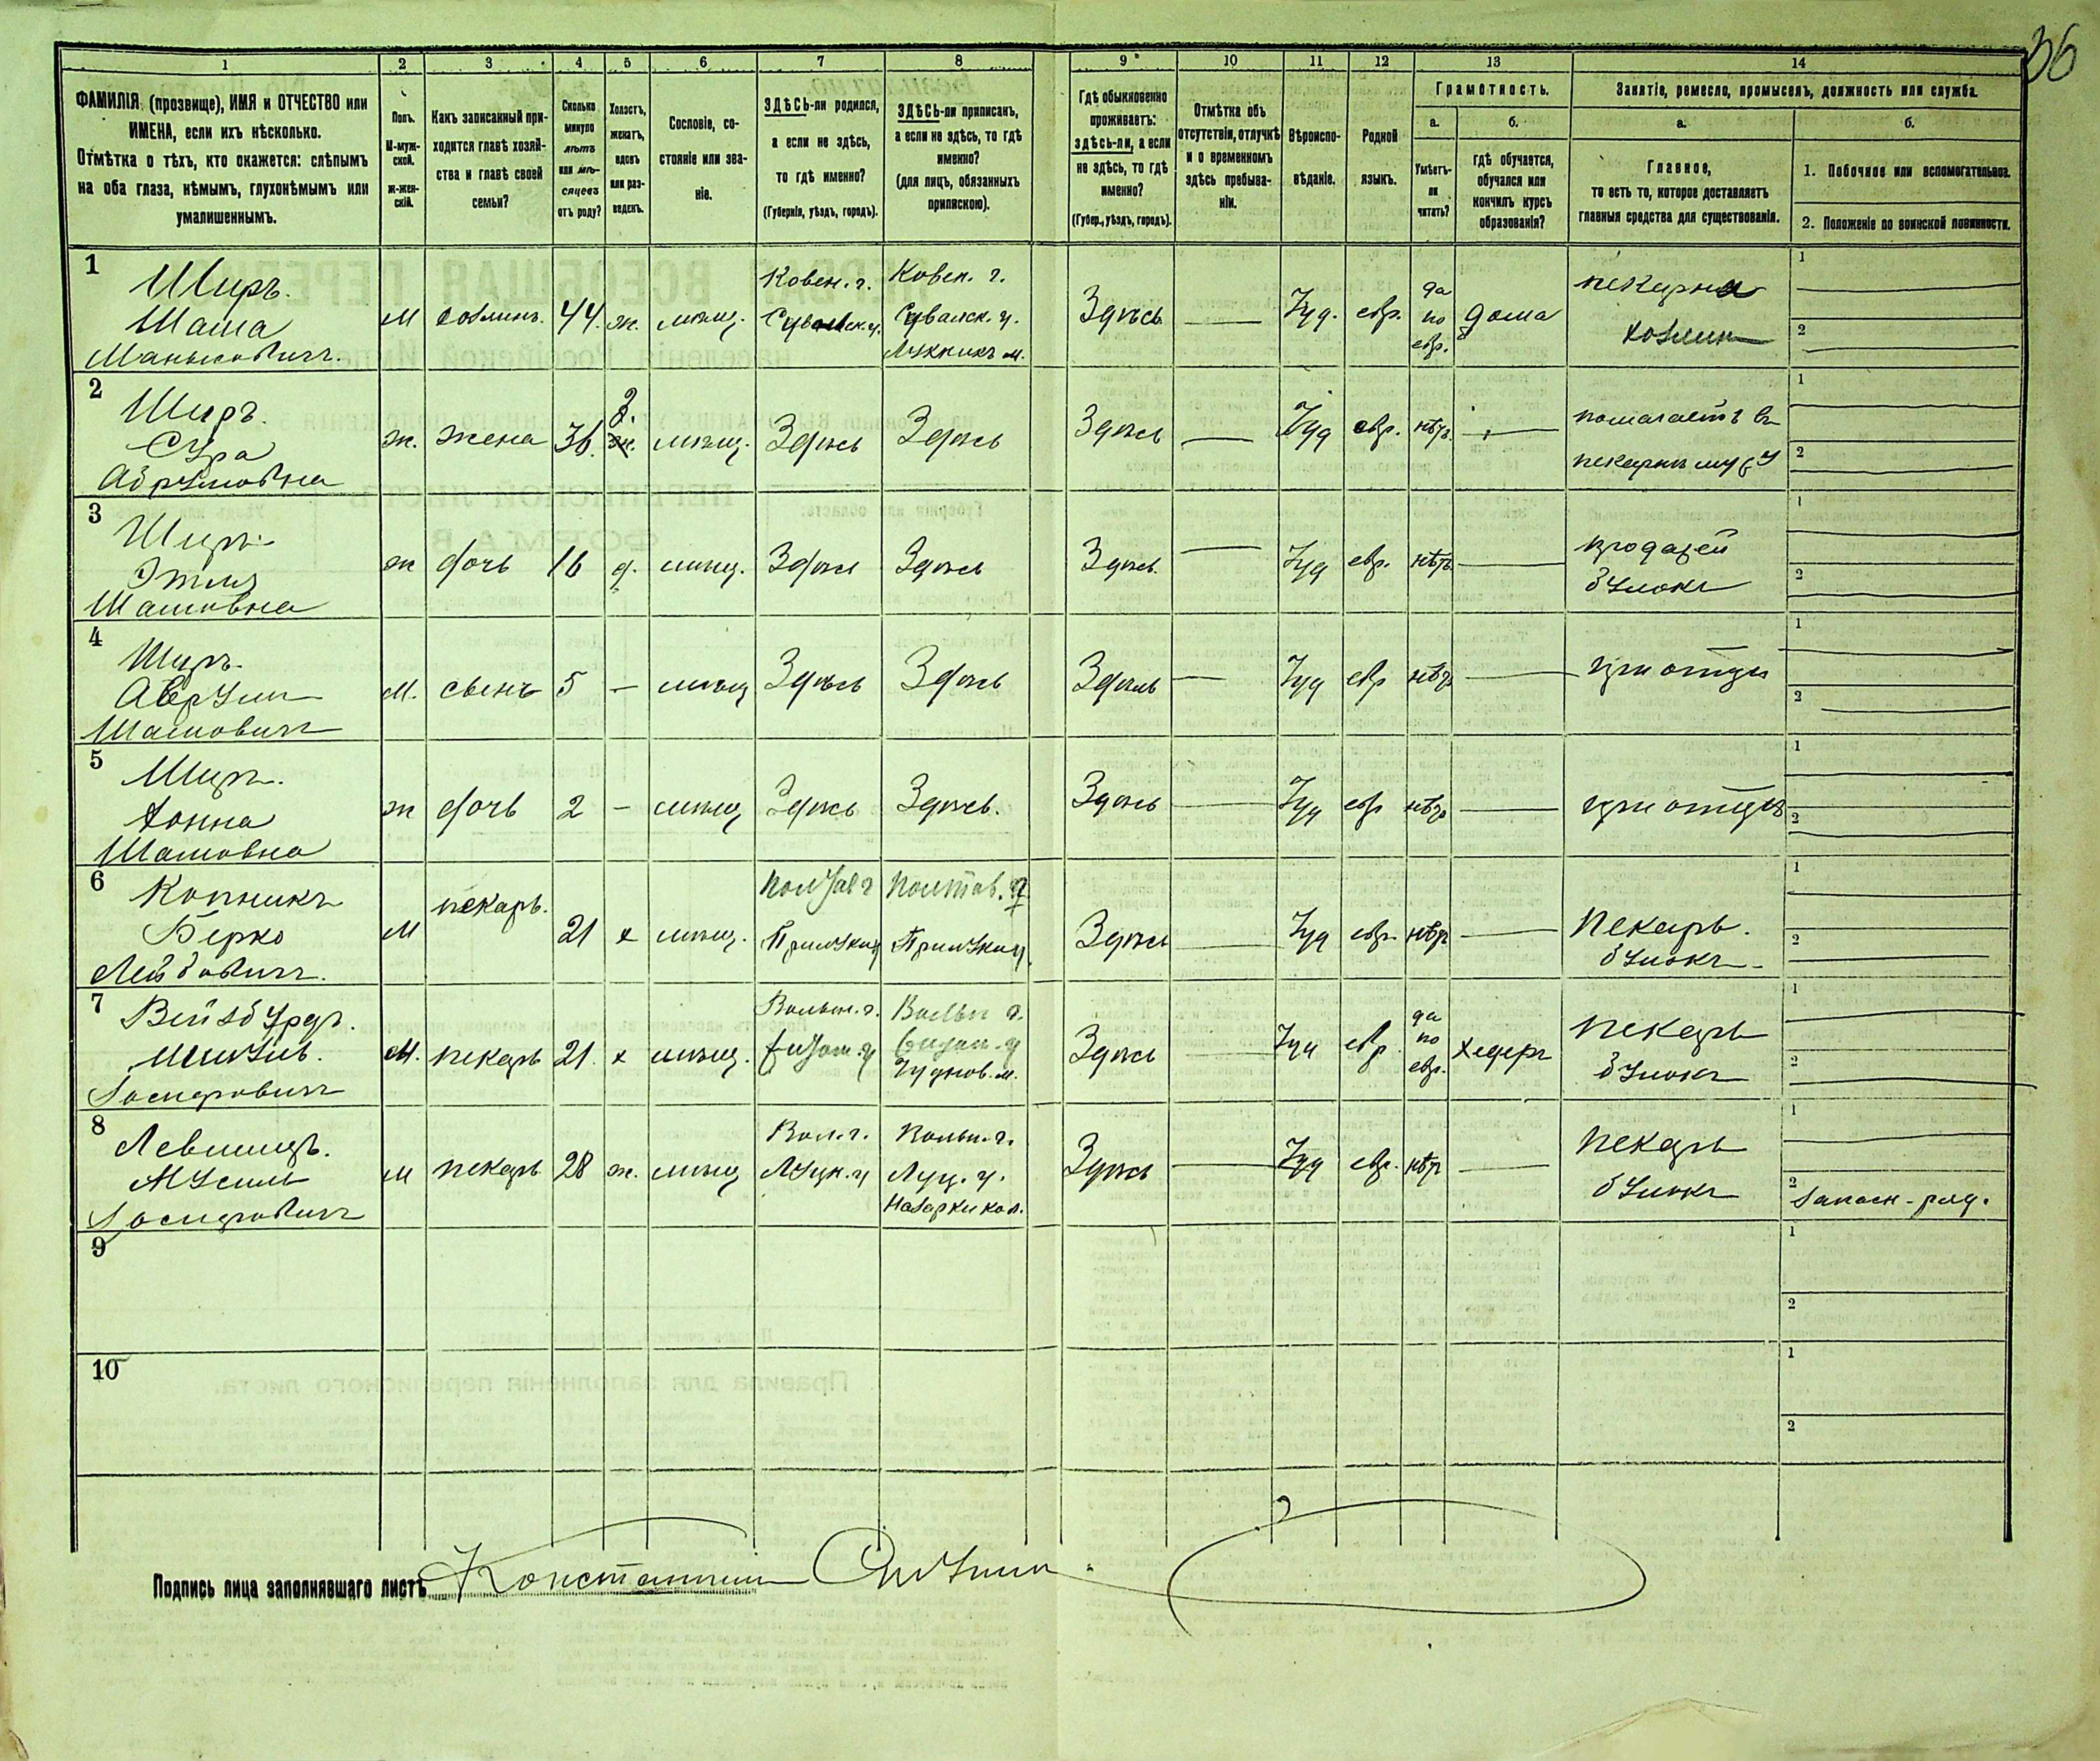 36
1 2 3 4 5 6 7 8 9 10 11 12 13 14
ФАМИЛІЯ (прозвище), ИМЯ и ОТЧЕСТВО или
ИМЕНА, если ихъ нѣсколько.
Отмѣтка о тѣхъ, кто окажется: слѣпымъ
на оба глаза, нѣмымъ, глухонѣмымъ или
умалишеннымъ.
Полъ.
М-муж-
ской.
ж-жен-
скій.
Какъ записанный при-
ходится главѣ хозяй-
ства и главѣ своей
семьи?
Сколько
минуло
лѣтъ
или мѣ-
сяцевъ
отъ роду?
Холостъ,
женатъ,
вдовъ
или раз-
веденъ.
Сословіе, со-
стояніе или зва-
ніе.
ЗДѢСЬ-ли родился,
а если не здѣсь,
то гдѣ именно?
(Губернія, уѣздъ, городъ).
ЗДѢСЬ-ли приписанъ,
а если не здѣсь, то гдѣ
именно?
(для лицъ, обязанныхъ
припискою).
Гдѣ обыкновенно
проживаетъ:
здѣсь-ли, а если
не здѣсь, то гдѣ
именно?
(Губер., уѣздъ, городъ).
Отмѣтка объ
отсутствіи, отлучкѣ
и о временномъ
здѣсь пребыва-
ніи.
Вѣроиспо-
вѣданіе.
Родной
языкъ.
Грамотность.
а.
Умѣетъ-
ли
читать?
б.
гдѣ обучается,
обучался или
кончилъ курсъ
образованія?
Занятіе, ремесло, промыселъ, должность или служба.
а.
Главное,
то есть то, которое доставляетъ
главныя средства для существованія.
б.
1. Побочное или вспомогательное.
2. Положеніе по воинской повинности.
1
Широ.
Шама
М хозяинъ. 44. ж. мѣщ.
Ковен. г.
Ковен. г.
Сувалск. у.
Здѣсь — Іуд. евр.
да
по
евр.
дома
пекарня
хозяинъ
1
2
2
Широ.
Сура
Абрумовна
ж. жена 36. з. ж. мѣщ. Здѣсь Здѣсь Здѣсь — Іуд евр. нѣтъ —
помогаетъ въ
пекарнѣ мужу
1
2
3
Широ.
Этля
Шамовна
ж дочь 16 д. мѣщ. Здѣсь Здѣсь Здѣсь — Іуд евр. нѣтъ —
булокъ
1
2
4
Широ.
Аврум
Шамовичъ
М. сынъ 5 — мѣщ Здѣсь Здѣсь Здѣсь — Іуд евр нѣтъ — при отцѣ
1
2
5
Широ.
Шамовна
ж дочь 2 — мѣщ Здѣсь Здѣсь. Здѣсь — Іуд евр нѣтъ — при отцѣ
1
2
6
Копникъ
Берко
Лейбовичъ.
М пекарь. 21 х мѣщ.
Полтав г
Прилукск у
Полтав. г.
Прилукск у.
Здѣсь — Іуд евр. нѣтъ —
Пекарь.
булокъ
1
2
7
Вейзбурдъ.
Іосифовичъ
М. пекарь 21. х мѣщ.
Волын. г.
Житом. у
Волын г.
Житом. у
Чуднов. м.
Здѣсь — Іуд евр.
да
по
евр.
хедеръ
пекарь
булокъ
1
2
8
Левшицъ.
Мусиль
Іосифовичъ
М пекарь 28 ж. мѣщ
Вол. г.
Луцк. у
Волын. г.
Луц. у.
Назарки кол.
Здѣсь — Іуд евр. нѣтъ —
пекарь
булокъ
1
2
запасн-ряд.
9
1
2
10
1
2
Подпись лица заполнявшаго листъ Константинъ